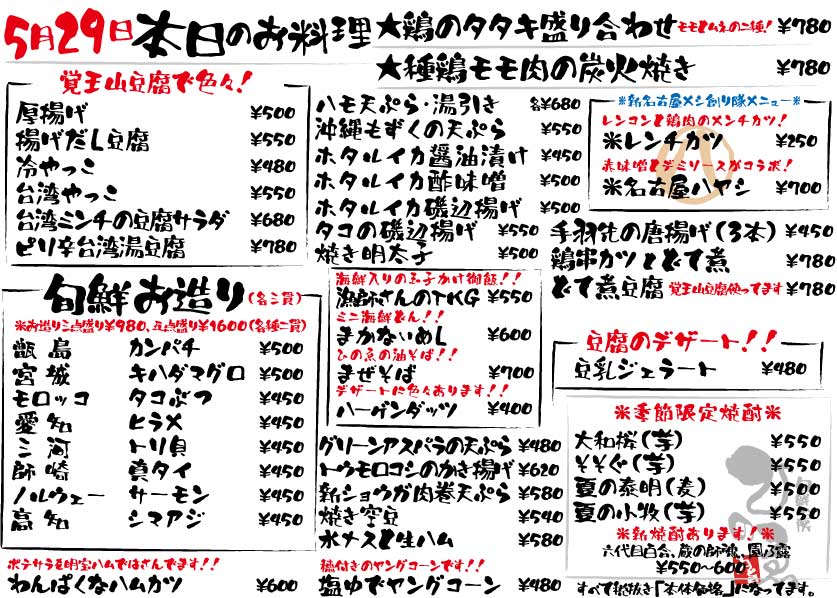 5月29日 本日のお料理
★鶏のタタキ盛り合わせ モモとムネの二種! ¥780
★種鶏モモ肉の炭火焼き ¥780
覚王山豆腐で色々!
厚揚げ ¥500
揚げだし豆腐 ¥550
冷やっこ ¥480
台湾やっこ ¥550
台湾ミンチの豆腐サラダ ¥680
ピリ辛台湾湯豆腐 ¥780
旬鮮お造り(各三貫)
※お造り三点盛り¥980、五点盛り¥1600(各種二貫)
甑島 カンパチ ¥500
宮城 キハダマグロ ¥500
モロッコ タコぶつ ¥450
愛知 ヒラメ ¥450
三河 トリ貝 ¥450
師崎 真タイ ¥450
ノルウェー サーモン ¥450
高知 シマアジ ¥450
ポテサラを明宝ハムではさんでます!!
わんぱくなハムカツ ¥600
ハモ天ぷら・湯引き 各¥680
沖縄もずくの天ぷら ¥550
ホタルイカ醤油漬け ¥450
ホタルイカ酢味噌 ¥500
ホタルイカ磯辺揚げ ¥500
タコの磯辺揚げ ¥550
焼き明太子 ¥550
海鮮入りの玉子かけ御飯!!
漁師さんのTKG ¥550
ミニ海鮮どん!!
まかないめし ¥600
ひの魚の油そば!!
まぜそば ¥700
デザートに色々あります!!
ハーゲンダッツ ¥400
グリーンアスパラの天ぷら ¥480
トウモロコシのかき揚げ ¥620
新ショウガ肉巻天ぷら ¥580
焼き空豆 ¥540
水ナスと生ハム ¥580
穂付きのヤングコーンです!!
塩ゆでヤングコーン ¥480
※新名古屋メシ創り隊メニュー※
レンコンと鶏肉のメンチカツ!
※レンチカツ ¥250
赤味噌とデミソースがコラボ!
※名古屋ハヤシ ¥700
手羽先の唐揚げ(3本) ¥450
鶏串カツとどて煮 ¥780
どて煮豆腐 覚王山豆腐使ってます ¥780
豆腐のデザート!!
豆乳ジェラート ¥480
※季節限定焼酎※
大和桜(芋) ¥550
そそぐ(芋) ¥550
夏の泰明(麦) ¥500
夏の小牧(芋) ¥550
※新焼酎あります!※
六代目百合、蔵の師魂、
¥550~600
すべて税抜き「本体価格」になってます。